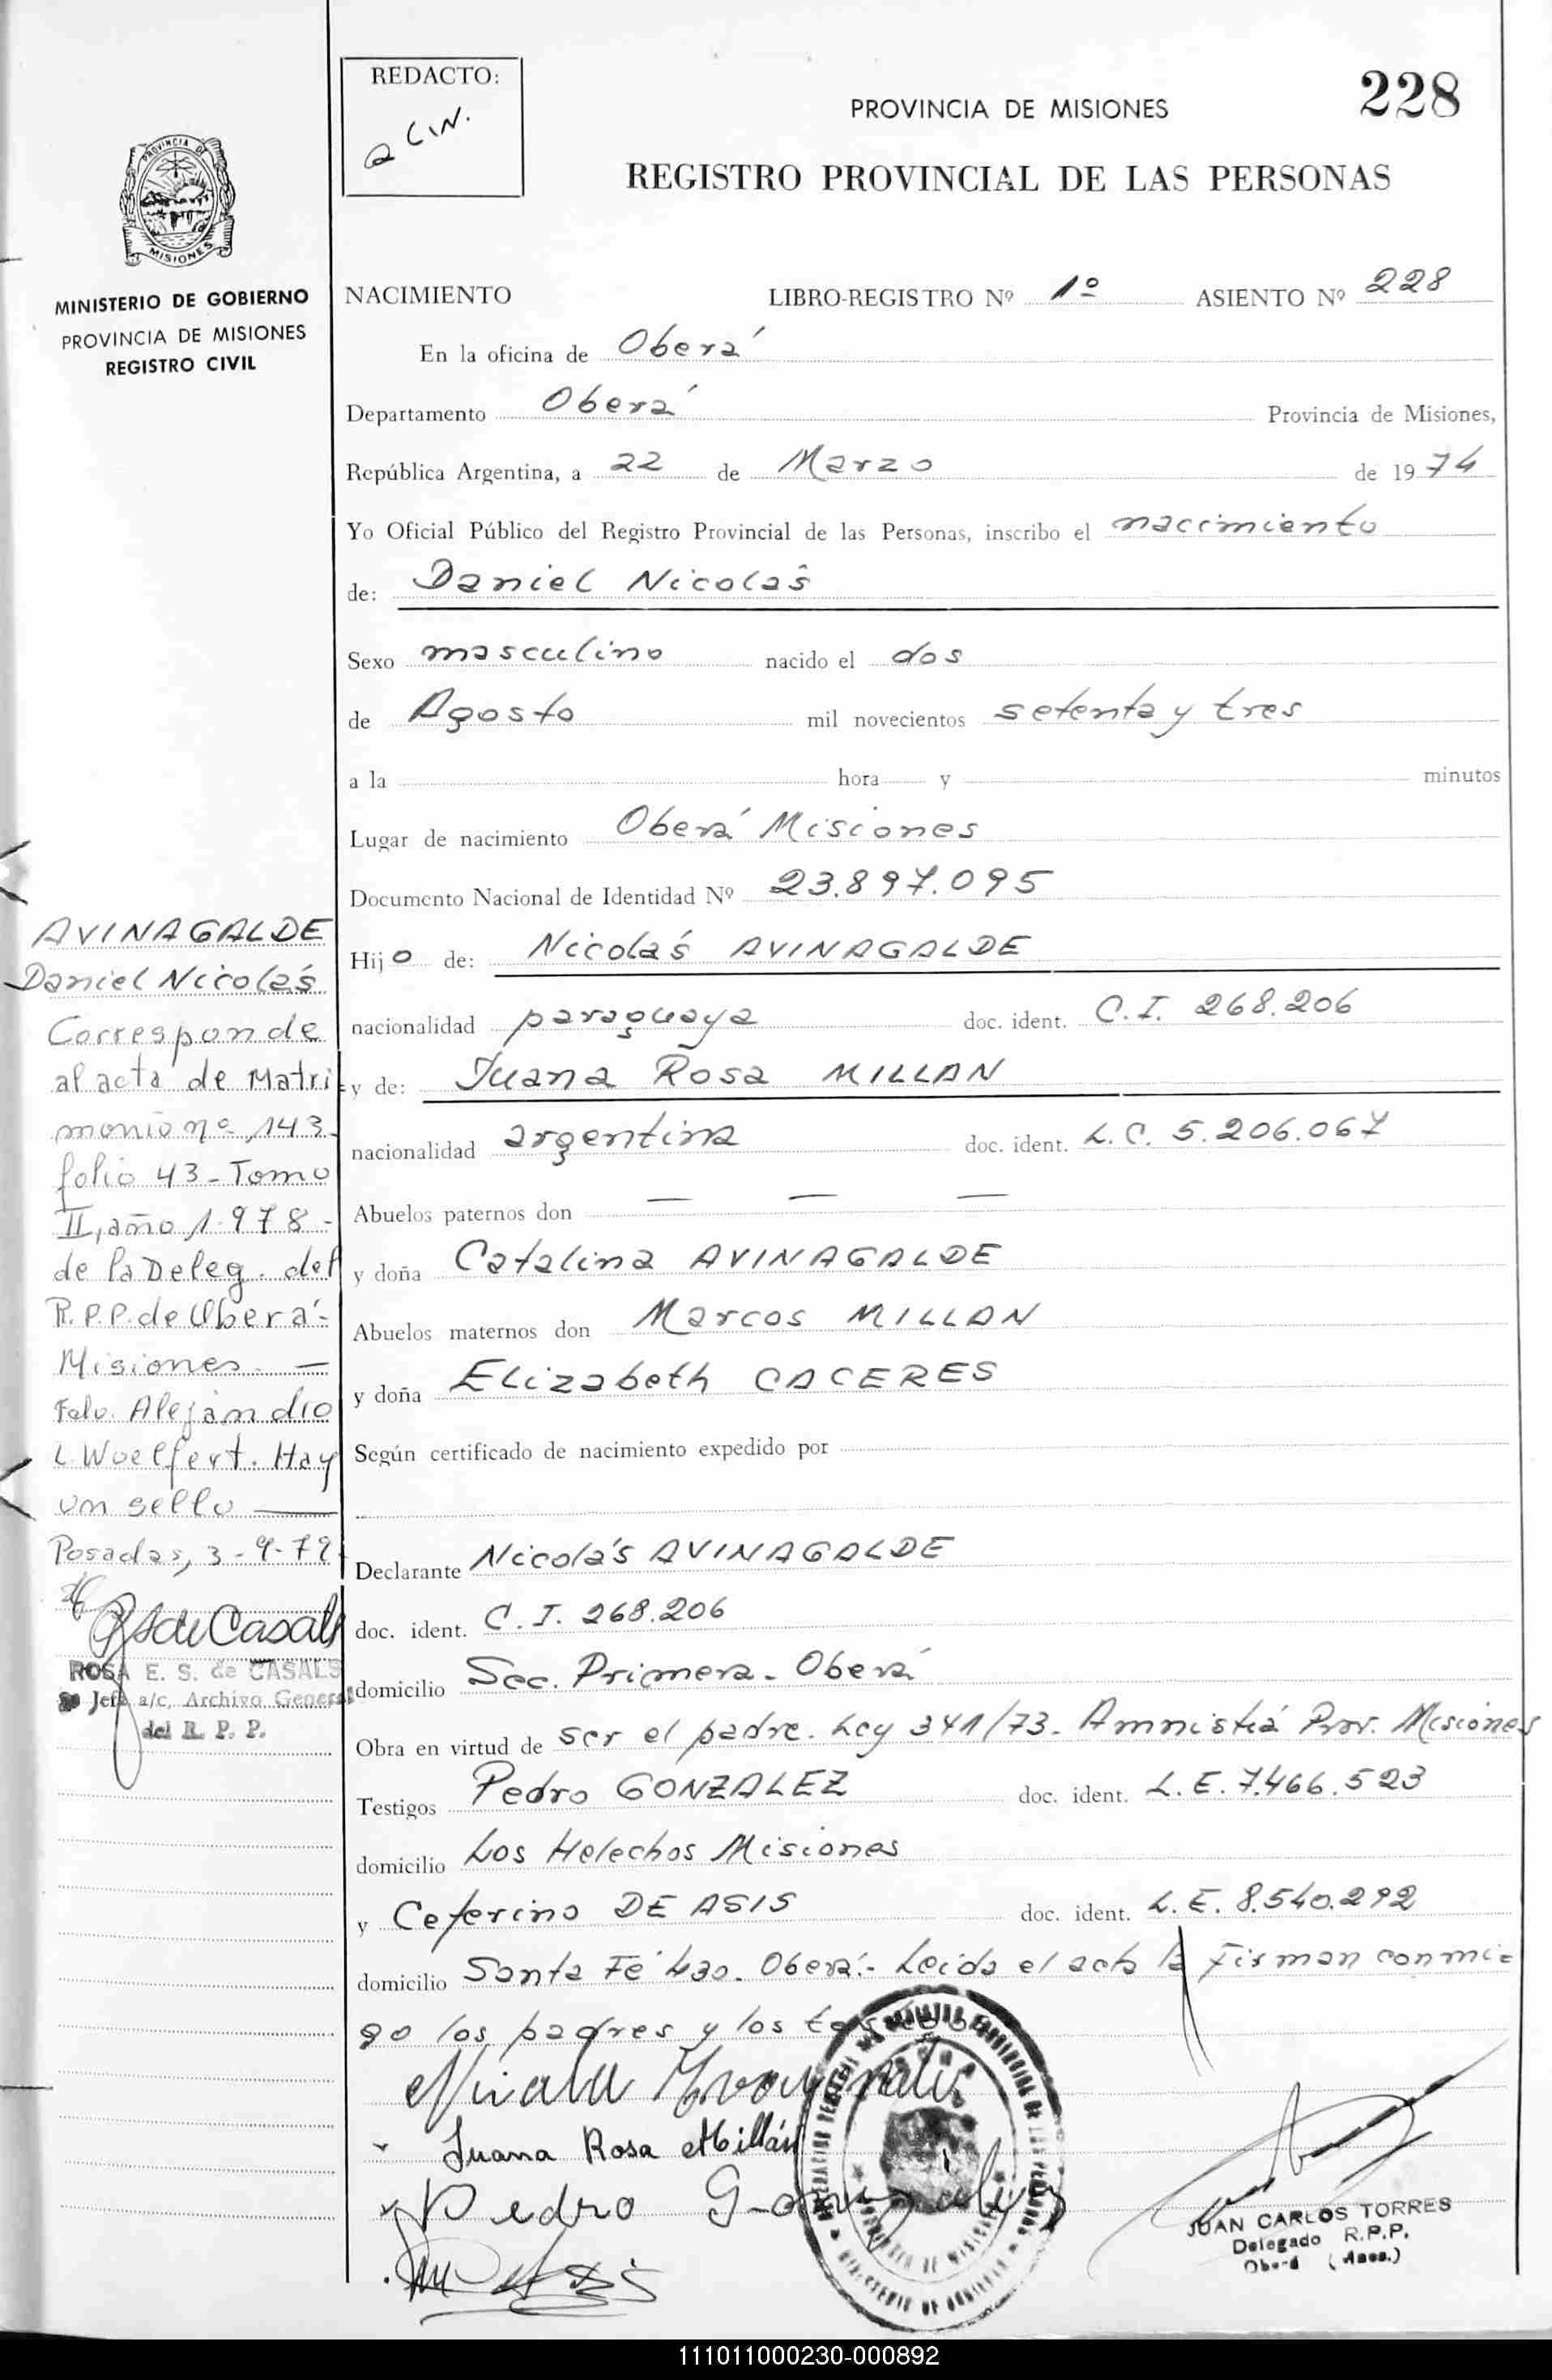 REDACTO:
PROVINCIA DE MISIONES
228
REGISTRO PROVINCIAL DE LAS PERSONAS
PROVINCIA DE
MISIONES
MINISTERIO DE GOBIERNO
PROVINCIA DE MISIONES
REGISTRO CIVIL
NACIMIENTO LIBRO-REGISTRO Nº 1º ASIENTO Nº 228
En la oficina de Oberá
Departamento Oberá Provincia de Misiones,
República Argentina, a 22 de Marzo de 1974
Yo Oficial Público del Registro Provincial de las Personas, inscribo el nacimiento
de: Daniel Nicolás
Sexo masculino nacido el dos
de Agosto mil novecientos setenta y tres
a la hora y minutos
Lugar de nacimiento Oberá Misiones
Documento Nacional de Identidad Nº 23.897.095
Hijo de: Nicolás AVINAGALDE
nacionalidad paraguaya doc. ident. C.I. 268.206
y de: Juana Rosa MILLAN
nacionalidad argentina doc. ident. L.C. 5.206.067
Abuelos paternos don — — —
y doña Catalina AVINAGALDE
Abuelos maternos don Marcos MILLAN
y doña Elizabeth CACERES
Según certificado de nacimiento expedido por
Declarante Nicolás AVINAGALDE
doc. ident. C.I. 268.206
domicilio Sec. Primera - Oberá
Obra en virtud de ser el padre. Ley 341/73 - Amnistiá Prov. Misiones
Testigos Pedro GONZALEZ doc. ident. L.E. 7.466.523
domicilio Los Helechos Misiones
y Ceferino DE ASIS doc. ident. L.E. 8.540.292
domicilio Santa Fé 430. Oberá.- Leida el acta la firman conmi-
go los padres y los testigos
Juana Rosa Millán
Pedro Gonzalez
JUAN CARLOS TORRES
Delegado R.P.P.
Oberá (Mnes.)
AVINAGALDE
Daniel Nicolás
Corresponde
al acta de Matri-
monio nº 143
folio 43 - Tomo
II, año 1.978 -
de la Deleg. del
R.P.P. de Oberá -
Misiones. —
Fdo. Alejandro
L. Woelfert. Hay
un sello —
Posadas, 3-9-79
ROSA E. S. de CASALS
Jefe a/c. Archivo General
del R. P. P.
111011000230-000892